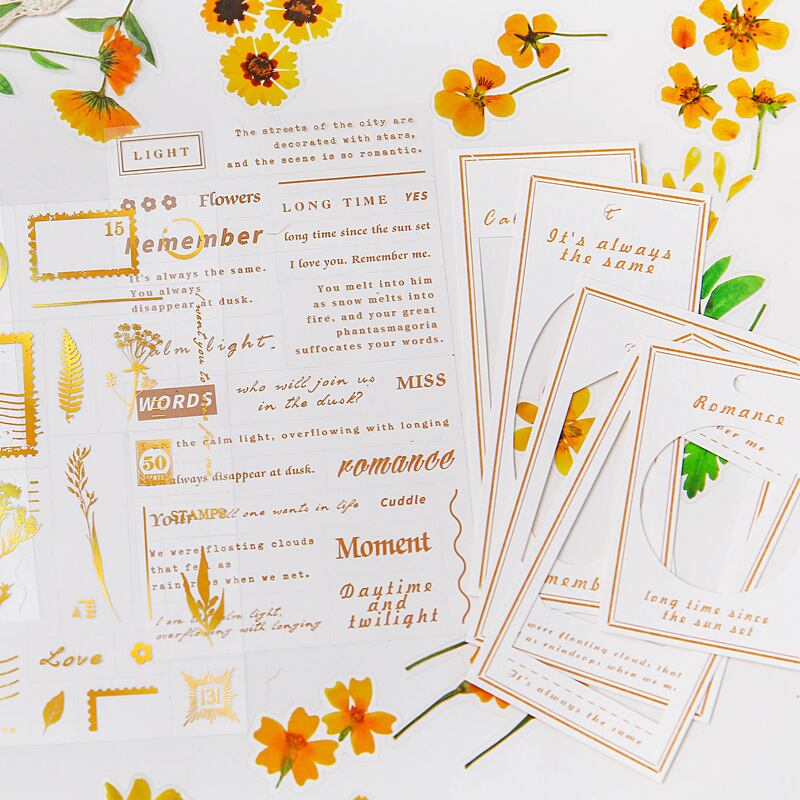 LIGHT
The streets of the city are
decorated with stars,
and the scene is so romantic.
Flowers
LONG TIME YES
15
Remember
long time since the sun set
I love you. Remember me.
It's always the same.
You always
disappear at dusk.
You melt into him
as snow melts into
fire, and your great
phantasmagoria
suffocates your words.
Calm light.
who will join us
in the dusk?
MISS
WORDS
the calm light, overflowing with longing
50
CENTS
always disappear at dusk.
romance
Your
STAMPS
all one wants in life
Cuddle
We were floating clouds
that fell as
raindrops when we met.
Moment
Daytime
and
twilight
I am the calm light,
overflowing with longing
Love
131
Cal
It's always
the same
Romance
over me
long time since
the sun set
were floating clouds that
as raindrops when we me
It's always the same